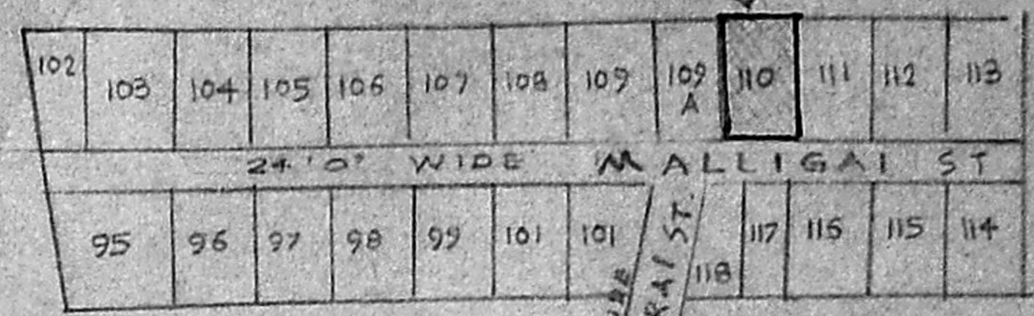 102 103 104 105 106 107 108 109 109 A 110 111 112 113
24'0" WIDE MALLIGAI ST
95 96 97 98 99 101 101 118 117 116 115 114
RAI ST.